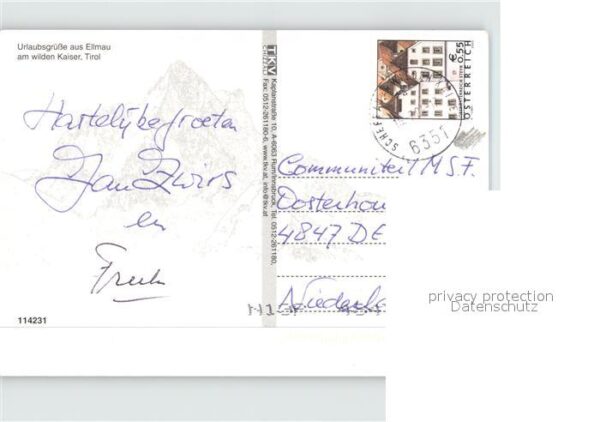 Urlaubsgrüße aus Ellmau
am wilden Kaiser, Tirol
Hartelijke groeten
Jan Zwirs
en
114231
TKV
Kaplanstraße 10, A-6063 Rum/Innsbruck, Tel. 0512-261180,
Fax: 0512-261180-6, www.tkv.at, info@tkv.at
€ 0,55
ÖSTERREICH
6351
Communiteit M.S.F.
Oosterhou
4847 DE
Niederla
privacy protection
Datenschutz